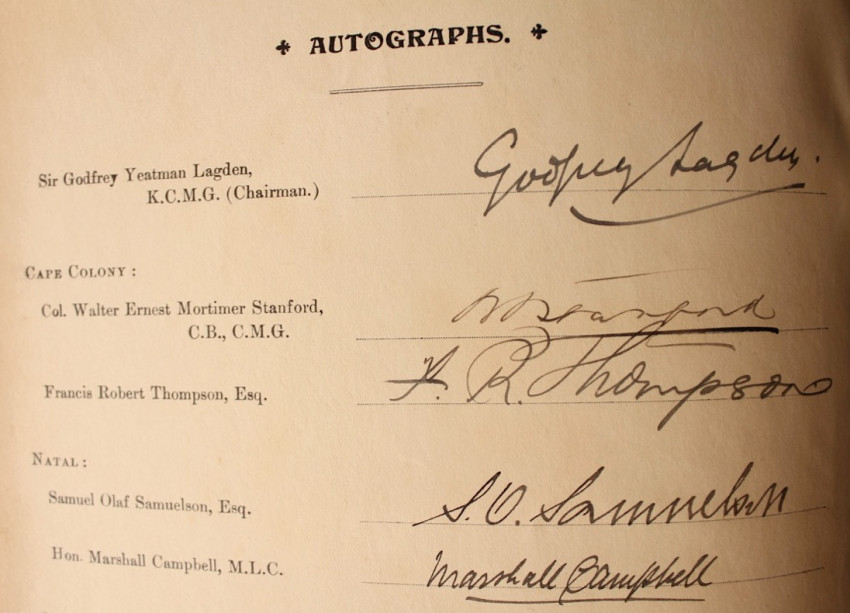 AUTOGRAPHS.
Sir Godfrey Yeatman Lagden,
K.C.M.G. (Chairman.)
Godfrey Lagden.
CAPE COLONY:
Col. Walter Ernest Mortimer Stanford,
C.B., C.M.G.
Stanford
Francis Robert Thompson, Esq.
F. R. Thompson
NATAL:
Samuel Olaf Samuelson, Esq.
S. O. Samuelson
Hon. Marshall Campbell, M.L.C.
Marshall Campbell